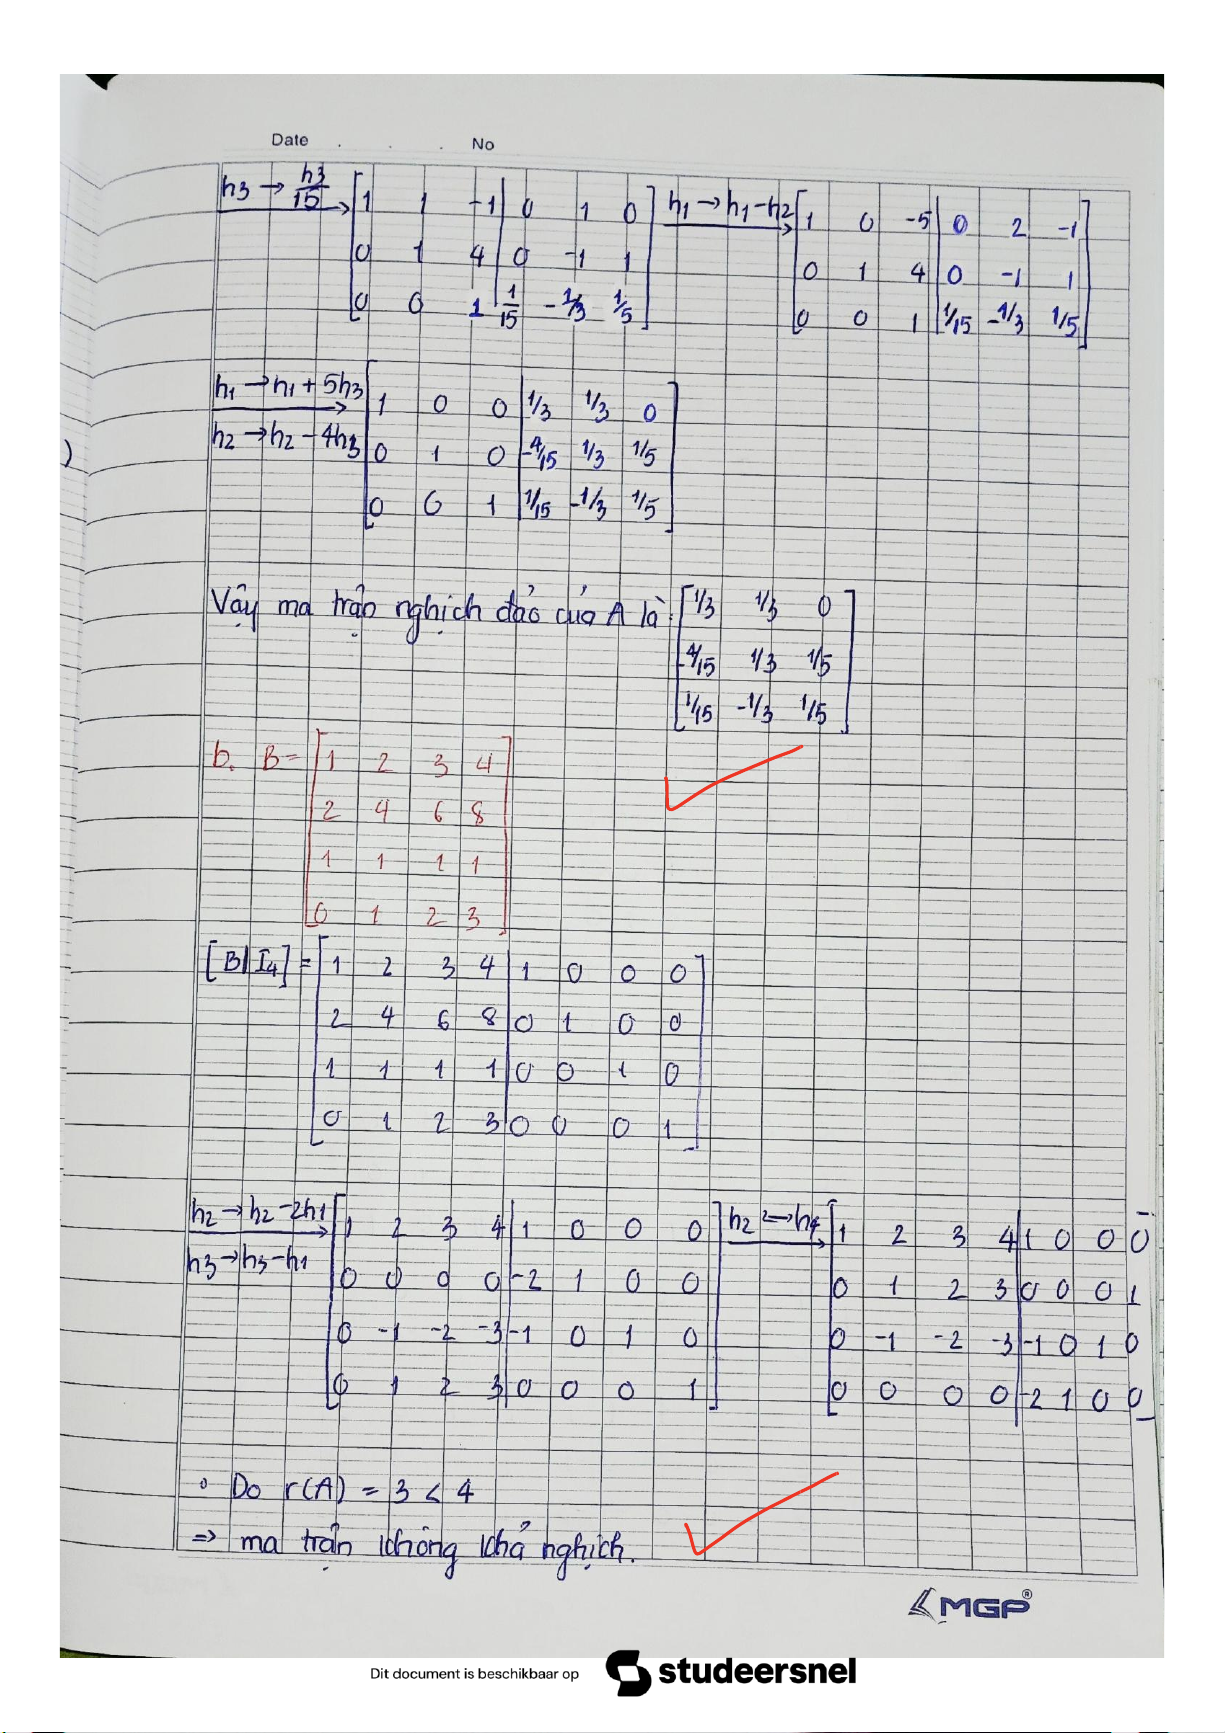 Date . . . No
h3 → h3/15 [1 1 -1 | 0 1 0] h1 → h1 - h2 [1 0 -5 | 0 2 -1]
[0 1 4 | 0 -1 1] [0 1 4 | 0 -1 1]
[0 0 1 | 1/15 -1/3 1/5] [0 0 1 | 1/15 -1/3 1/5]
h1 → h1 + 5h3 [1 0 0 | 1/3 1/3 0]
h2 → h2 - 4h3 [0 1 0 | -4/15 1/3 1/5]
[0 0 1 | 1/15 -1/3 1/5]
)
Vậy ma trận nghịch đảo của A là: [1/3 1/3 0]
[-4/15 1/3 1/5]
[1/15 -1/3 1/5]
b. B = [1 2 3 4]
[2 4 6 8]
[1 1 1 1]
[0 1 2 3]
[B | I4] = [1 2 3 4 | 1 0 0 0]
[2 4 6 8 | 0 1 0 0]
[1 1 1 1 | 0 0 1 0]
[0 1 2 3 | 0 0 0 1]
h2 → h2 - 2h1 [1 2 3 4 | 1 0 0 0] h2 ↔ h4 [1 2 3 4 | 1 0 0 0]
h3 → h3 - h1 [0 0 0 0 | -2 1 0 0] [0 1 2 3 | 0 0 0 1]
[0 -1 -2 -3 | -1 0 1 0] [0 -1 -2 -3 | -1 0 1 0]
[0 1 2 3 | 0 0 0 1] [0 0 0 0 | -2 1 0 0]
Do r(A) = 3 < 4
=> ma trận không khả nghịch.
MGP®
Dit document is beschikbaar op studeersnel